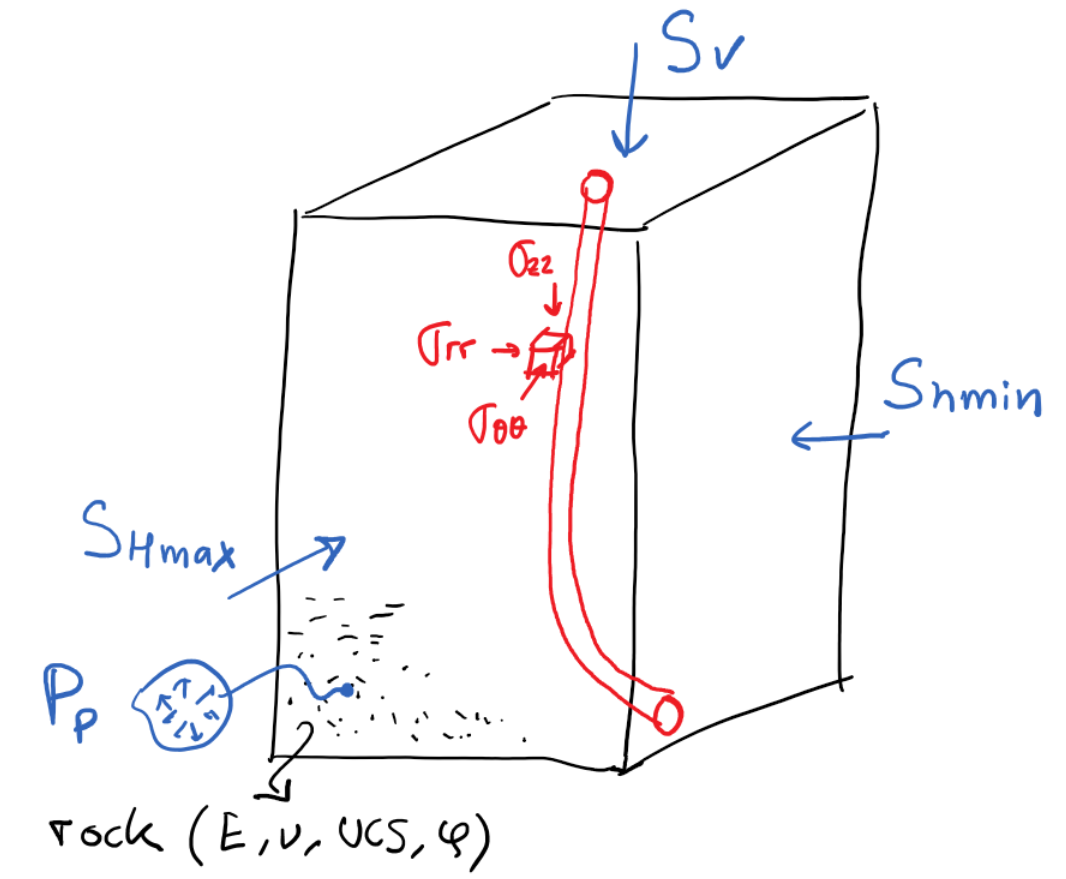 Sv
σzz
σrr
σθθ
Shmin
SHmax
Pp
rock (E, ν, UCS, φ)